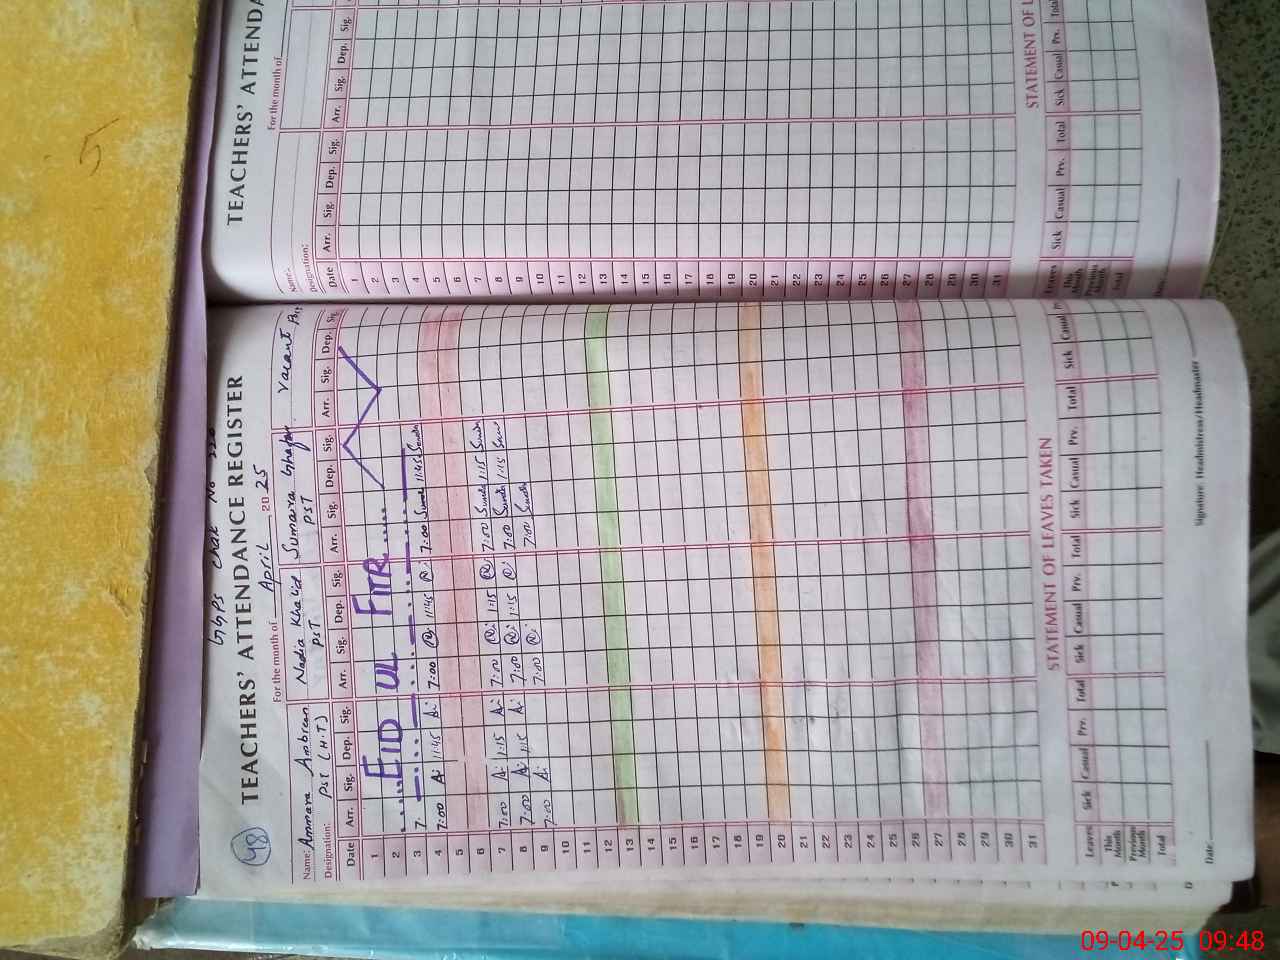 48
GGPS Chak No
TEACHERS' ATTENDANCE REGISTER
For the month of April, 2025
Name: Ammara Ambreen Nadia Khalid Sumaira Ghafar Vacant
Designation: PST (H.T) PST PST
Date Arr. Sig. Dep. Sig. Arr. Sig. Dep. Sig. Arr. Sig. Dep. Sig. Arr. Sig. Dep. Sig.
1
2 EID UL FITR
3
4 7:00 11:45 7:00 11:45 7:00 11:45
5
6
7 7:00 1:15 7:00 1:15 7:00 1:15
8 7:00 1:15 7:00 1:15 7:00 1:15
9 7:00 7:00 7:00
10
11
12
13
14
15
16
17
18
19
20
21
22
23
24
25
26
27
28
29
30
31
STATEMENT OF LEAVES TAKEN
Leaves Sick Casual Prv. Total Sick Casual Prv. Total Sick Casual Prv. Total Sick Casual
This Month
Previous Month
Total
Date
Signature Headmistress/Headmaster
TEACHERS' ATTENDA
For the month of
Name:
Designation:
Date Arr. Sig. Dep. Sig. Arr. Sig. Dep. Sig.
1
2
3
4
5
6
7
8
9
10
11
12
13
14
15
16
17
18
19
20
21
22
23
24
25
26
27
28
29
30
31
STATEMENT OF L
Leaves Sick Casual Prv. Total Sick Casual Prv. Total
This Month
Previous Month
Total
5
09-04-25 09:48